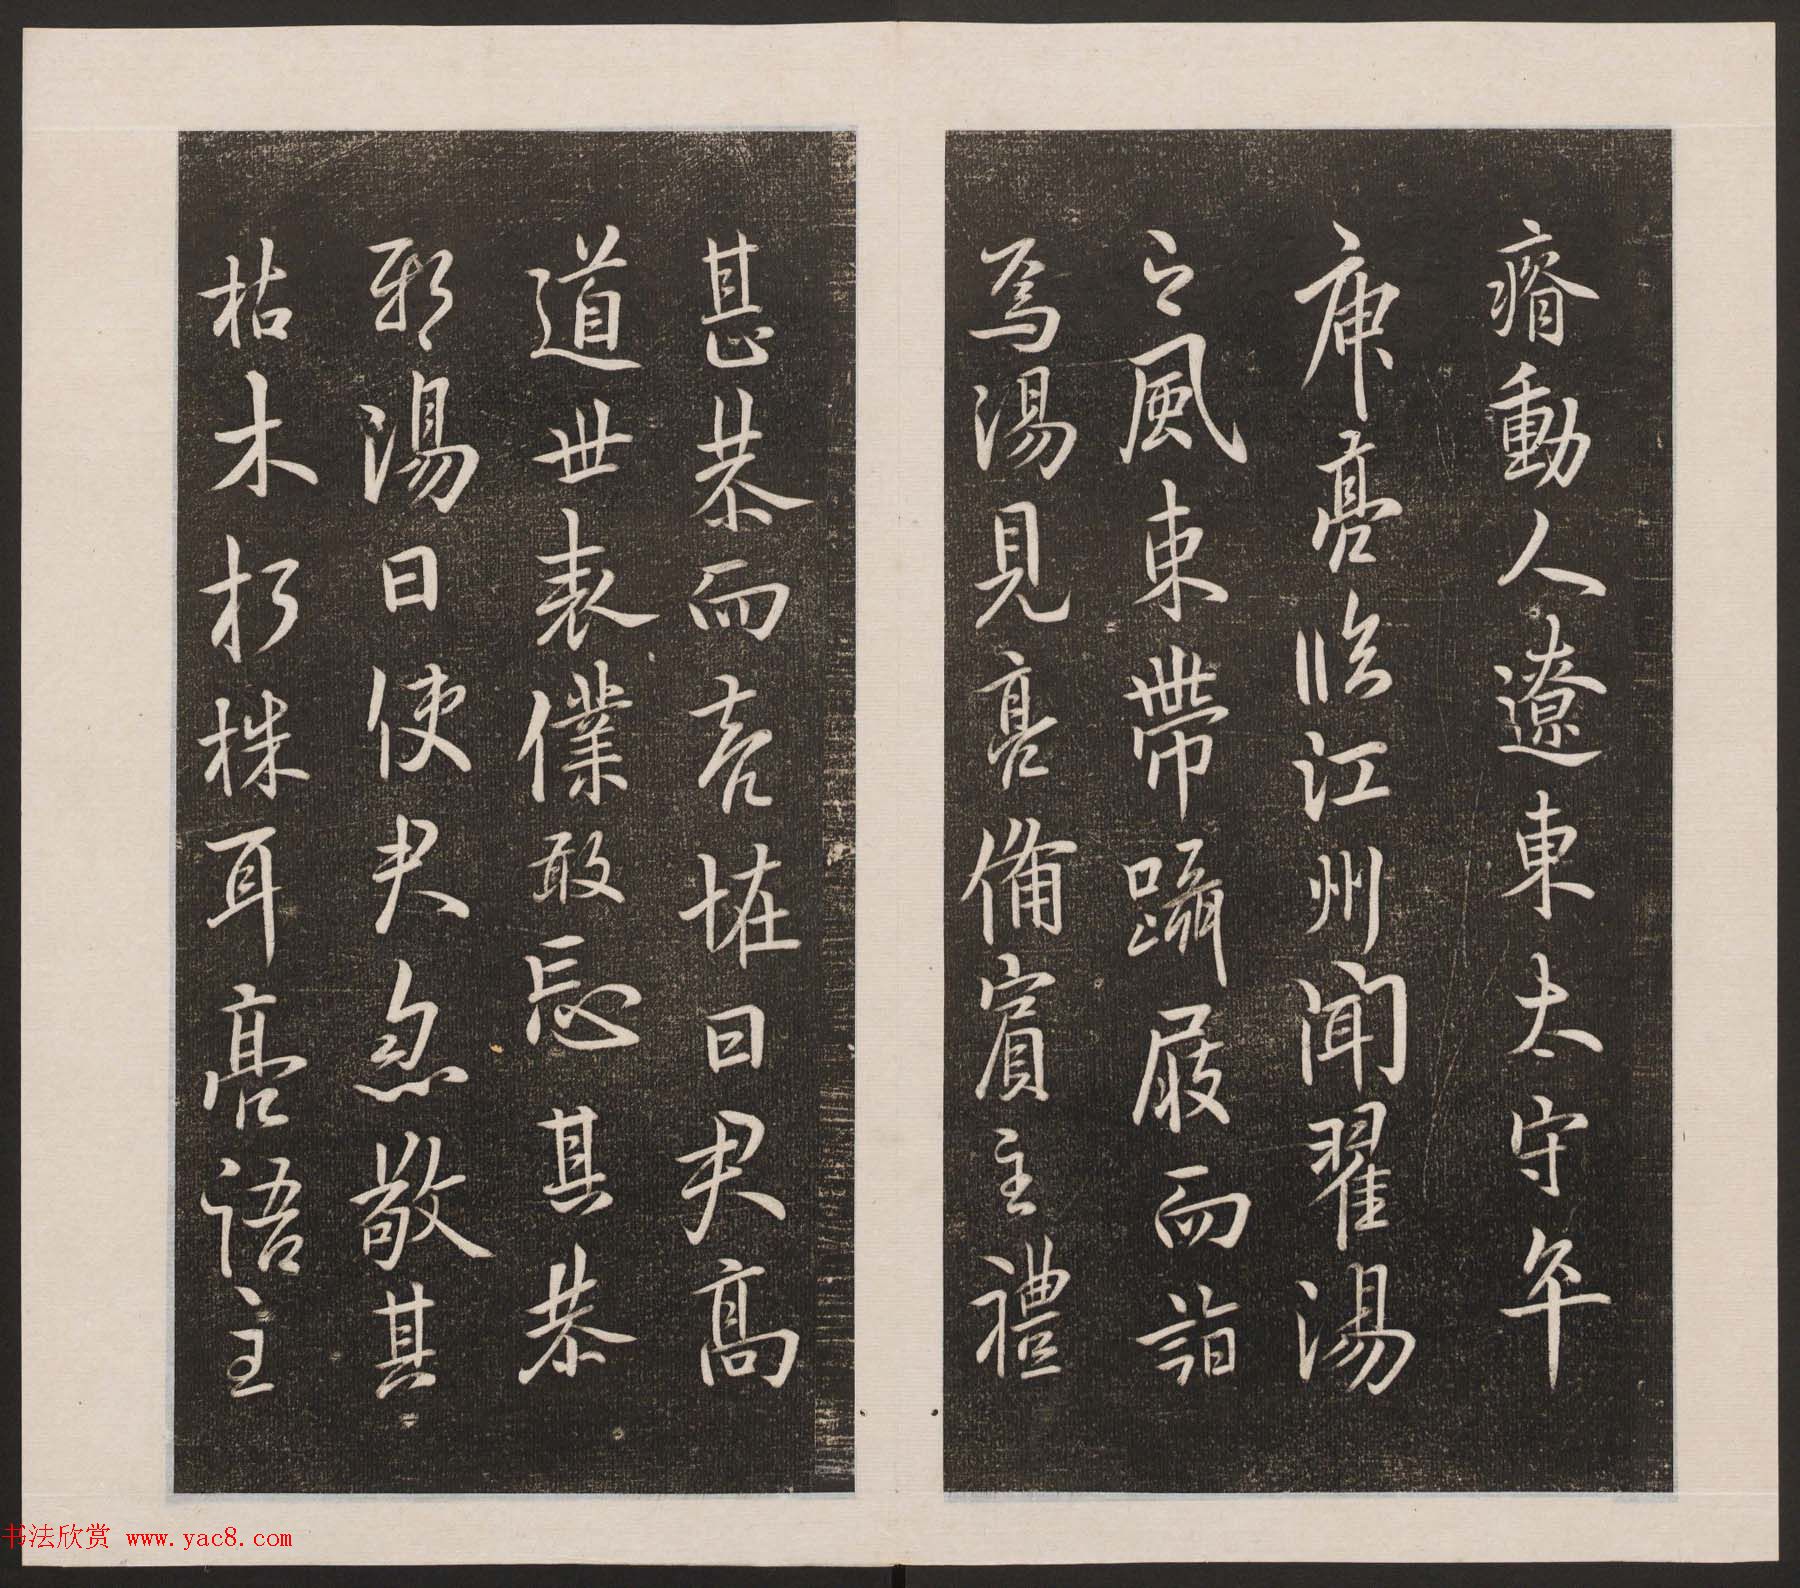 瘠動人遼東太守年
庾亮臨江州聞翟湯
之風束帶躡屐而詣
焉湯見亮備賓主禮
甚恭而亮恠曰君高
道世表僕敢忘其恭
邪湯曰使君忽敬其
枯木朽株耳亮語主
书法欣赏 www.yac8.com